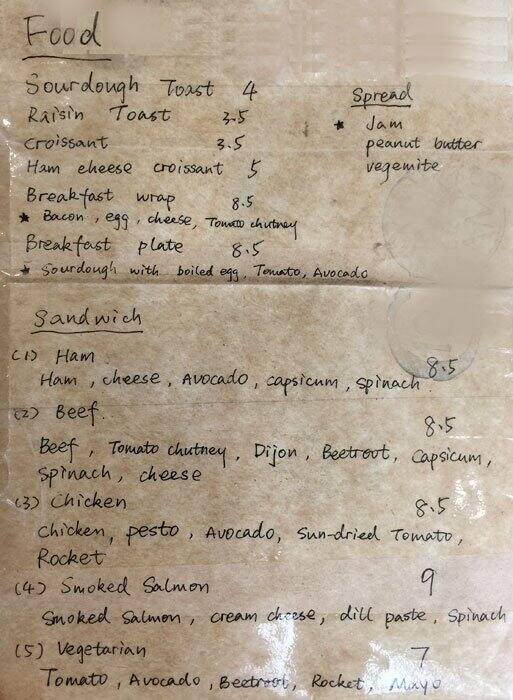 Food
Sourdough Toast 4
Raisin Toast 3.5
Croissant 3.5
Ham cheese croissant 5
Breakfast wrap 8.5
★ Bacon, egg, cheese, Tomato chutney
Breakfast plate 8.5
★ Sourdough with boiled egg, Tomato, Avocado
Spread
★ Jam
peanut butter
vegemite
Sandwich
(1) Ham 8.5
Ham, cheese, Avocado, capsicum, spinach
(2) Beef. 8.5
Beef, Tomato chutney, Dijon, Beetroot, Capsicum,
Spinach, cheese
(3) Chicken 8.5
Chicken, pesto, Avocado, Sun-dried Tomato,
Rocket
(4) Smoked Salmon 9
Smoked Salmon, cream cheese, dill paste, Spinach
(5) Vegetarian 7
Tomato, Avocado, Beetroot, Rocket, Mayo